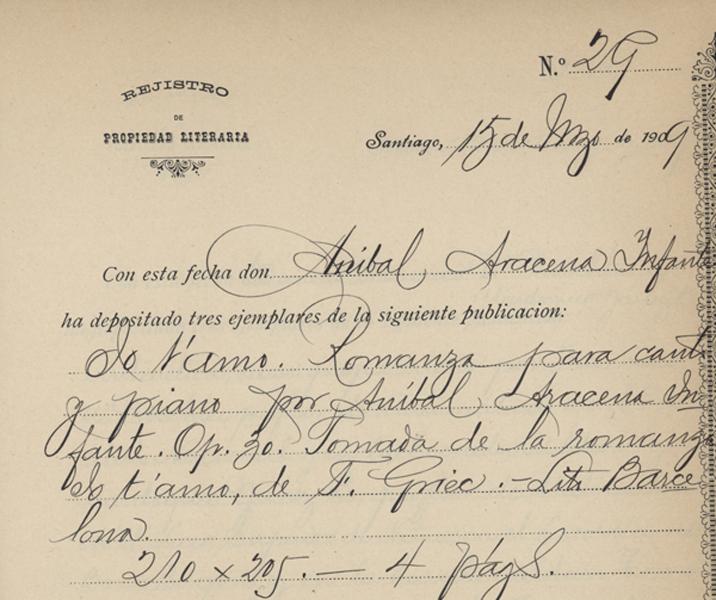 N.º 29
REJISTRO
DE
PROPIEDAD LITERARIA
Santiago, 15 de Mzo de 1909
Con esta fecha don Aníbal Aracena Infante
ha depositado tres ejemplares de la siguiente publicacion:
Io t'amo. Romanza para canto
y piano por Aníbal Aracena In-
fante. Op. 30. Tomada de la romanza
Io t'amo, de F. Griec.- Lit. Barce
lona.
210 x 205. — 4 págs.